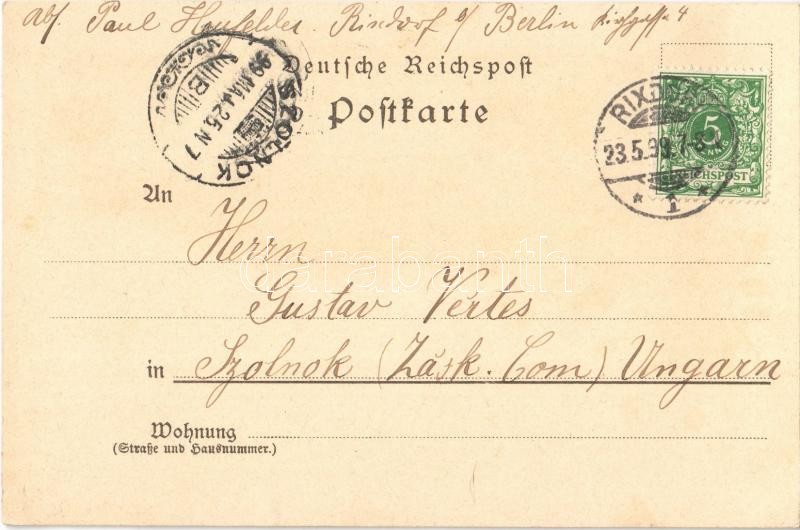 Abs. Paul Rixdorf b/ Berlin Kirchgasse 4
Deutsche Reichspost
Postkarte
RIXDORF
23.5.99. 7-8
* 1 *
5
REICHSPOST
SZOLNOK
99 MAJ 25 N 7
B
An
Herrn
Gustav Vértes
in Szolnok (Zásk. Com) Ungarn
Wohnung
(Straße und Hausnummer.)
darabanth